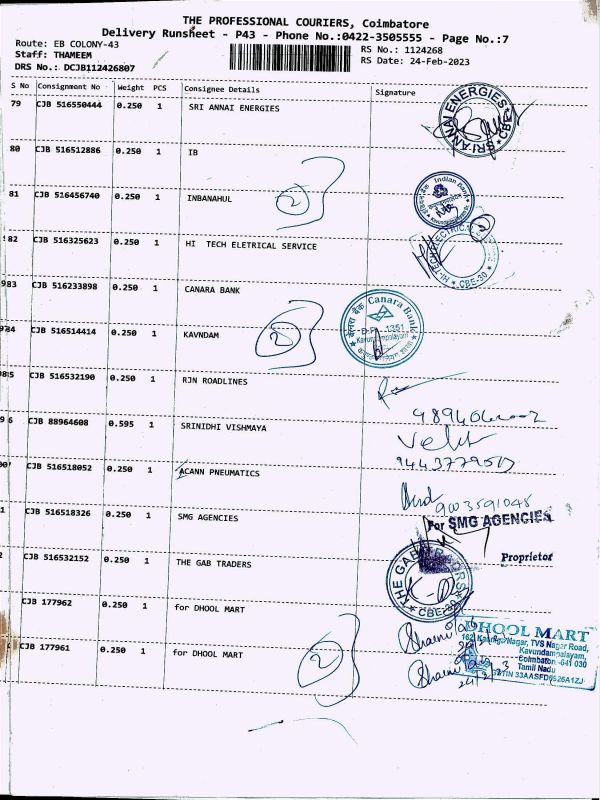 THE PROFESSIONAL COURIERS, Coimbatore
Delivery Runsheet - P43 - Phone No.:0422-3505555 - Page No.:7
Route: EB COLONY-43
Staff: THAMEEM
DRS No.: DCJB112426807
RS No.: 1124268
RS Date: 24-Feb-2023
S No Consignment No Weight PCS Consignee Details Signature
79 CJB 516550444 0.250 1 SRI ANNAI ENERGIES
SRI ANNAI ENERGIES * CBE *
80 CJB 516512886 0.250 1 IB
2
81 CJB 516456740 0.250 1 INBANAHUL
Indian Bank
82 CJB 516325623 0.250 1 HI TECH ELETRICAL SERVICE
HI-TECH ELECTRICAL * CBE-30 *
83 CJB 516233898 0.250 1 CANARA BANK
केनरा बैंक Canara Bank
1351
84 CJB 516514414 0.250 1 KAVNDAM
2
85 CJB 516532190 0.250 1 RJN ROADLINES
CJB 88964608 0.595 1 SRINIDHI VISHMAYA
CJB 516518052 0.250 1 ACANN PNEUMATICS
9003591045
CJB 516518326 0.250 1 SMG AGENCIES
For SMG AGENCIES
Proprietor
CJB 516532152 0.250 1 THE GAB TRADERS
THE GAB TRADERS * CBE-30 *
CJB 177962 0.250 1 for DHOOL MART
DHOOL MART
TVS Nagar Road,
Kavundampalayam,
Coimbatore-641 030
Tamil Nadu
CJB 177961 0.250 1 for DHOOL MART
2
24/2/23